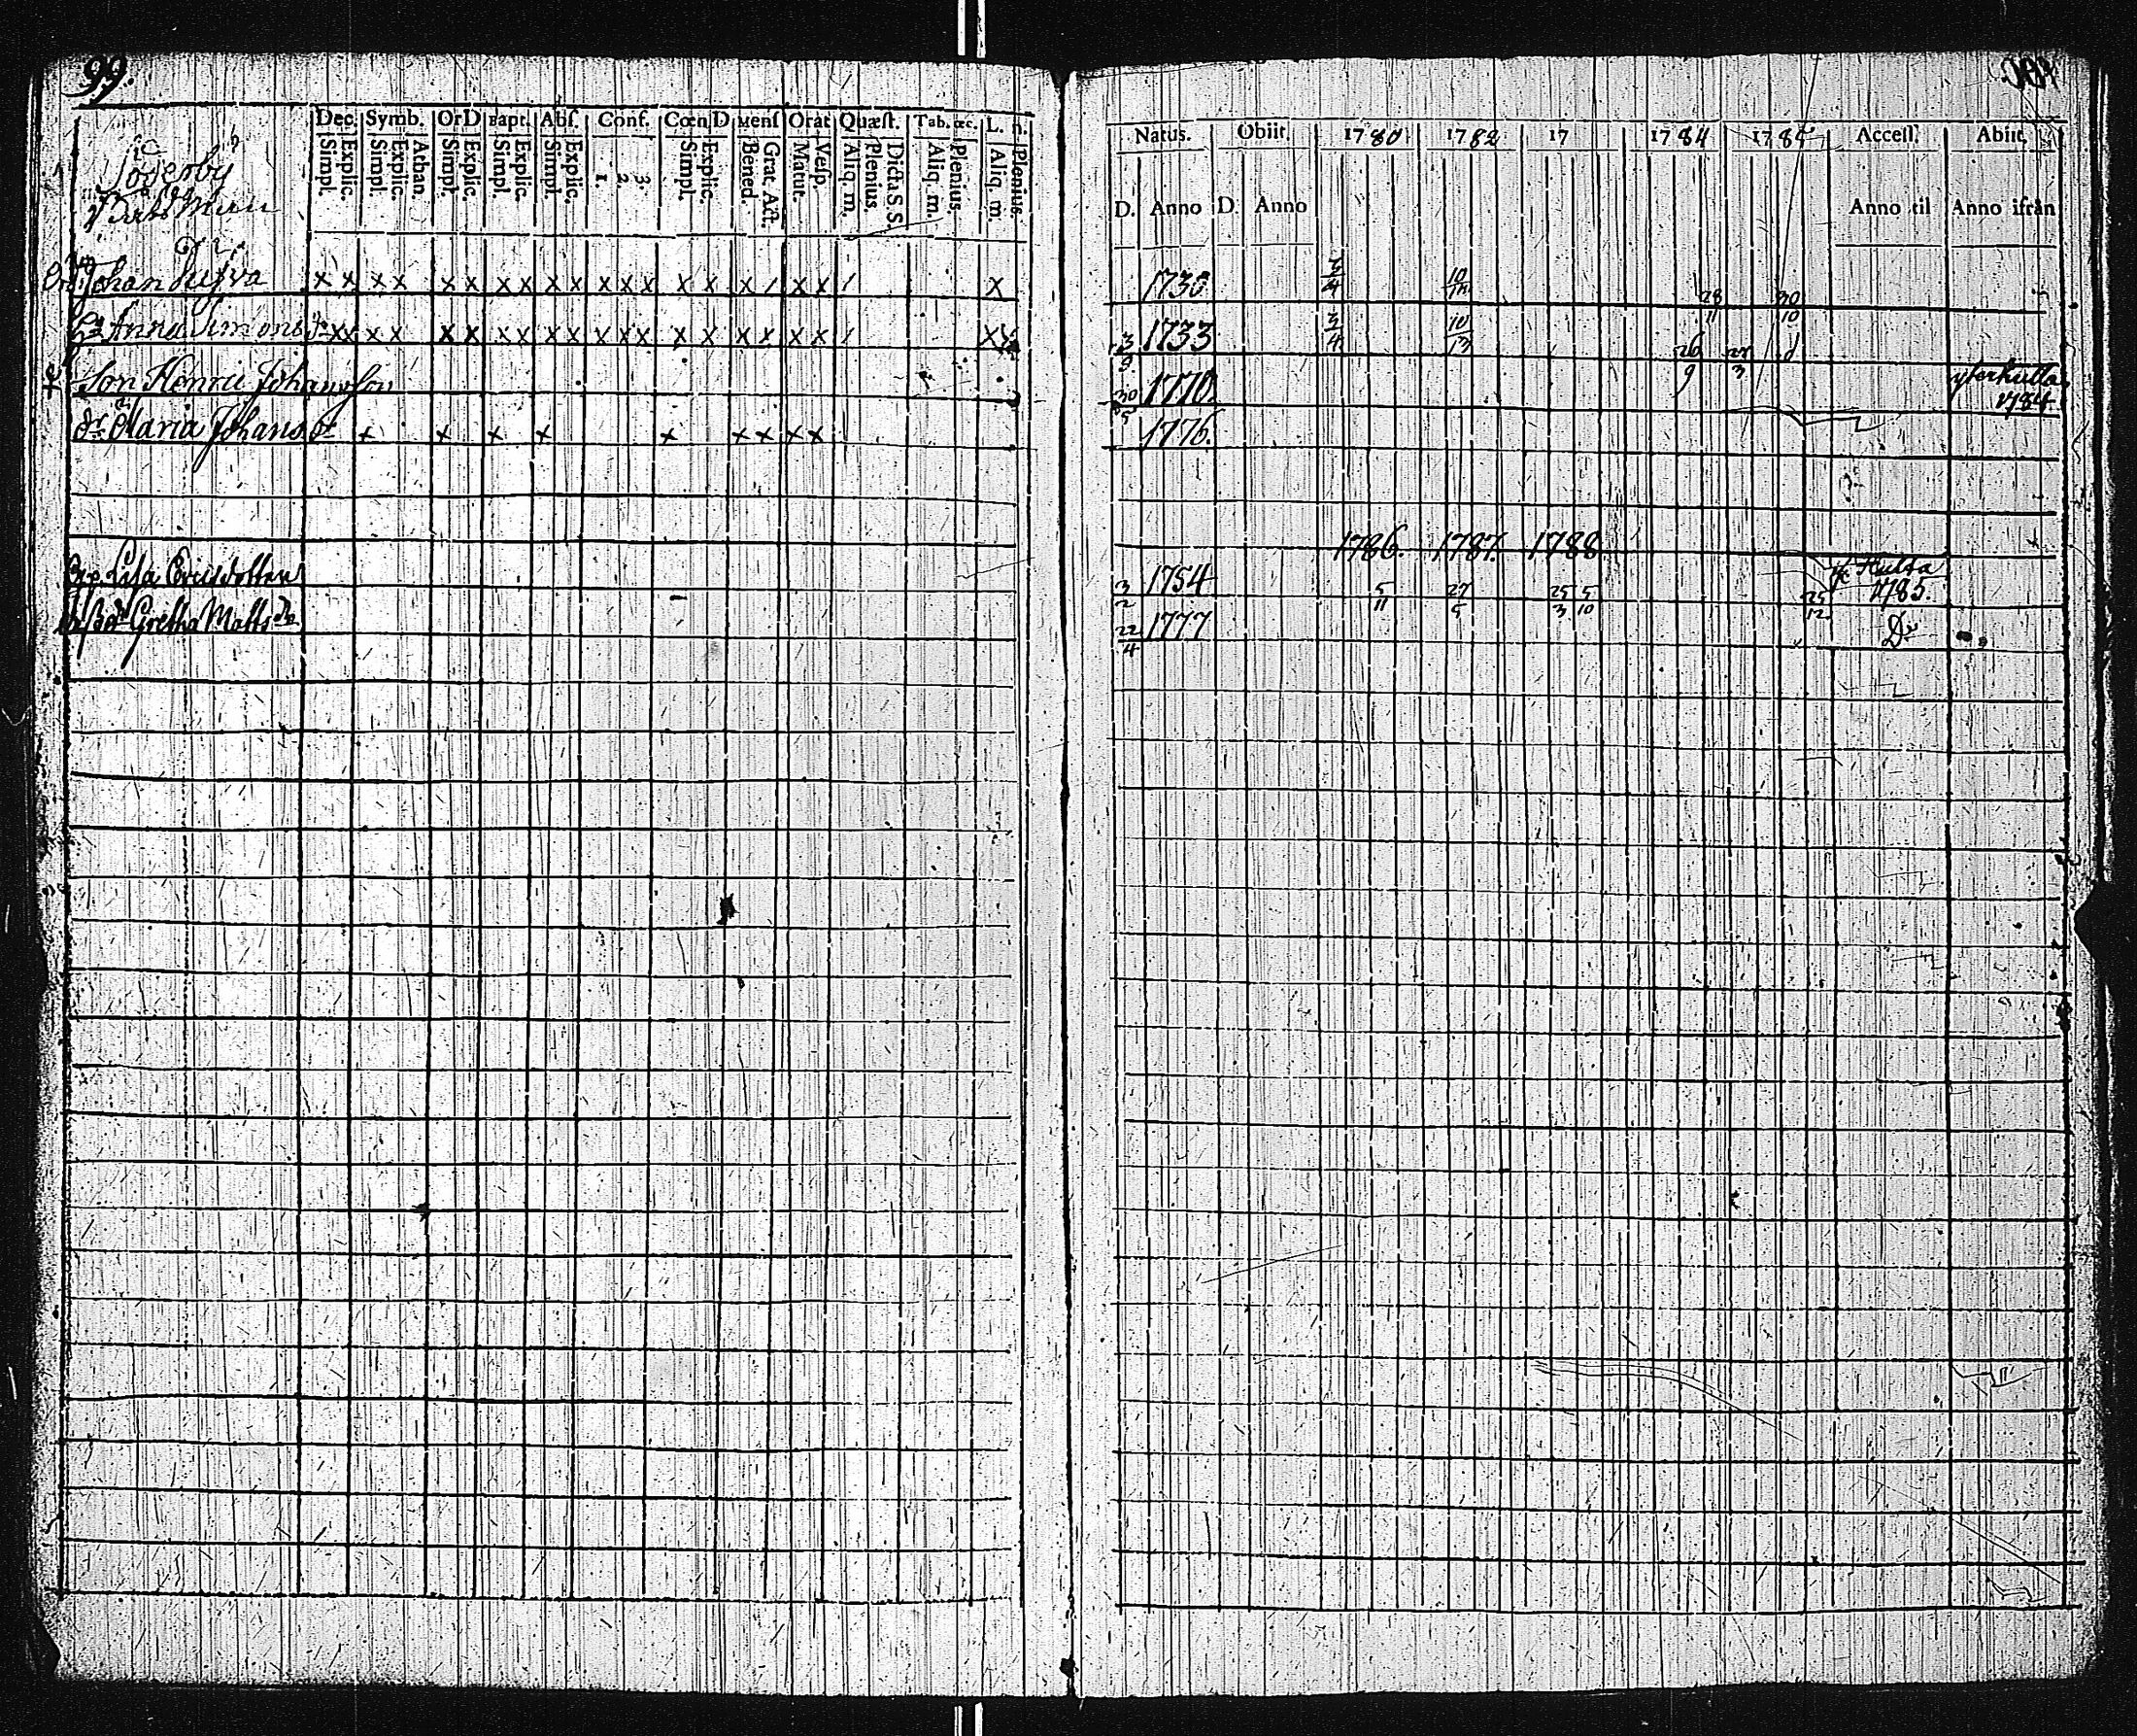 99.
Söderby
Dec. Symb. OrD Bapt. Abſ. Conf. Cœn D Menſ Orat Quæſt. Tab. œc. L. n.
Simpl. Explic. Simpl. Explic. Athan. Simpl. Explic. Simpl. Explic. Simpl. Explic. 1. 2. 3. Simpl. Explic. Bened. Grat. Act. Matut. Veſp. Aliq. m. Plenius. Dicta S. S. Aliq. m. Plenius. Aliq. m. Plenius.
Natus. Obiit. 1780 1782 17 1784 1785 Acceſſ. Abiit.
D. Anno D. Anno Anno til Anno ifrån
Johan x x x x x x x x x x x x x x x x / x x / x 1730 28/11 30/10
Anna Simons x x x x x x x x x x x x x x x x x x x / x x 3/9 1733 3/4 10/13 26/9
Son Henric Johansson 30/5 1770 1784
Maria Johans dr x x x x x x x x x 1776.
1786. 1787. 1788
Lisa Ericsdotter 3/2 1754 5/11 27/5 25/3 5/10 25/12 Hulta 1785.
Gretha Matts dr 22/4 1777 Do